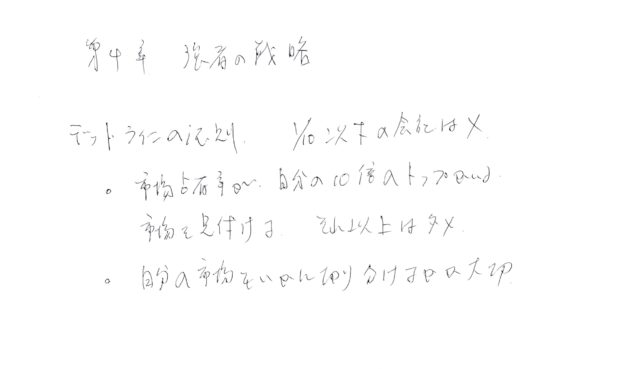 第4章 強者の戦略
デットラインの法則 1/10以下の会社は×
○ 市場占有率が、自分の10倍のトップがいる
市場を見付ける それ以上はダメ
○ 自分の市場をいかに切り分けするかが大切